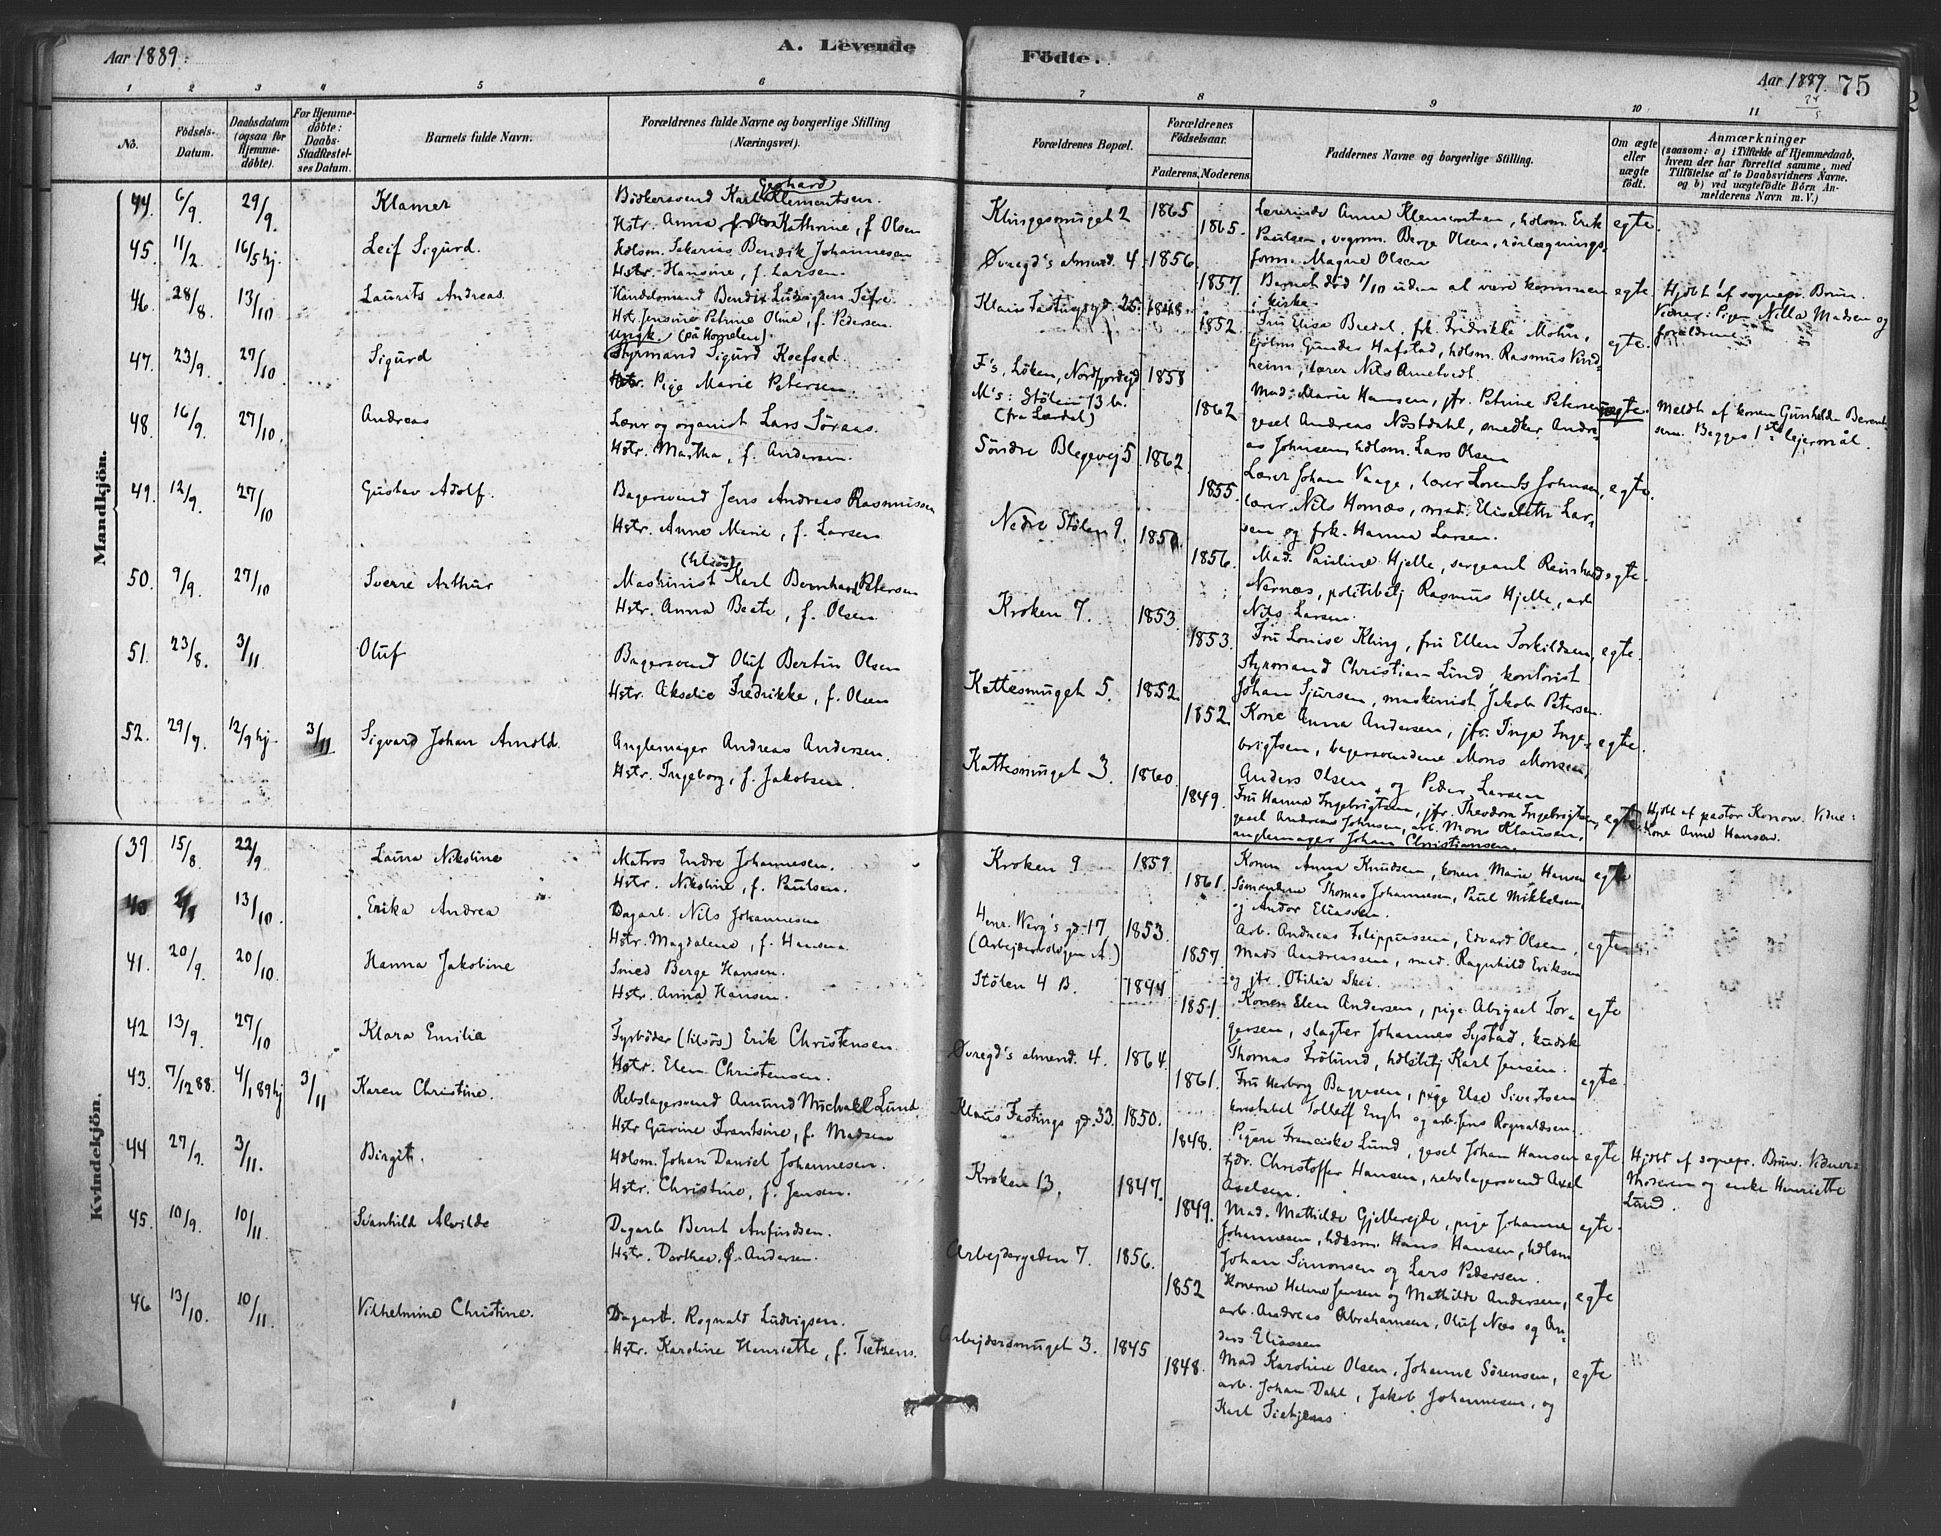 Aar 1889.
A. Levende
Födte.
Aar 1889. 75
1 2 3 4 5 6 7 8 9 10 11
No.
Födsels-Datum.
Daabsdatum (ogsaa for Hjemmedöbte).
For Hjemmedöbte: Daabs-Stadfæstelses Datum.
Barnets fulde Navn.
Forældrenes fulde Navne og borgerlige Stilling (Næringsvei).
Forældrenes Bopæl.
Forældrenes Födselsaar.
Faderens. Moderens.
Faddernes Navne og borgerlige Stilling.
Om ægte eller uægte födt.
Anmærkninger
(saasom: a) i Tilfælde af Hjemmedaab, hvem der har forrettet samme, med Tilföielse af to Daabsvidners Navne. og b) ved uægtefödte Börn Anmelderens Navn m. V.)
Mandkjön.
44. 6/9. 29/9. Klamer
Bödkersvend Karl Gerhard Klementsen.
Hstr. Anna Kathrine, f. Olsen
Klingesmuget 2 1865 1865.
Lærerinde Anna Klementsen, hdlsm. Erik
Paulsen, vognm. Berge Olsen, rörlægnings-
form. Magne Olsen
egte.
45. 11/2 16/5 hj. Leif Sigurd.
Hdlsm. Sakarias Bendik Johannesen
Hstr. Hansine, f. Larsen.
Øvregd's almend. 4. 1856. 1857.
Barnet död 1/10 uden at være kommen
i kirke.
egte.
Hjdbt af sognepr. Brun.
Vidner: Pige Nilla Madsen og
forældrene
46. 28/8. 13/10 Laurits Andreas.
Handelsmand Bendix Ludvigsen Tefre.
Hstr. Jensine Petrine Oline, f. Pedersen.
Klaus Fastingsgd. 25. 1848. 1852.
Fru Elisa Bredal, frk. Fredrikke Mohn,
Gunder Hafstad, hdlsm. Rasmus Vind-
heim, lærer Nils Arnetvedt.
egte.
47. 23/9. 27/10 Sigurd
Ungk. (på Hornelen)
Styrmand Sigurd Koefoed.
Pige Marie Petersen.
F's, Löken, Nordfjordejd 1858
M's: Stölen 13 b.
(fra Lærdal)
1862.
Mad. Marie Hansen, jfr. Petrine Petersen
gesel Andreas Nestdahl, smedker Andre-
as Johnsen, hdlsm. Lars Olsen
uægte.
Meldt af konen Gunhilda Berent-
sen. Begges 1ste lejermål.
48. 16/9. 27/10. Andreas
Lærer og organist Lars Söraas.
Hstr. Martha, f. Andersen.
Söndre Blegevej 5 1862. 1855.
Lærer Johan Vaage, lærer Lorents Johnsen,
lærer Nils Homæs, mad. Elisabeth Lar-
sen og frk. Hanna Larsen.
egte.
49. 12/9. 27/10 Gustav Adolf.
Bagersvend Jens Andreas Rasmussen
Hstr. Anne Marie, f. Larsen
Nedre Stølen 9. 1850. 1856.
Mad. Pauline Hjelle, sergeant Reinhard
Nernæs, politibetj Rasmus Hjelle, arb
Nils Larsen.
egte.
50. 9/9. 27/10 Sverre Arthur
(tilsös)
Maskinist Karl Bernhard Petersen
Hstr. Anna Beate, f. Olsen
Kroken 7. 1853. 1853.
Fru Louise Kling, fru Ellen Torkildsen,
styrmand Christian Lund, kontorist
Johan Sjursen, maskinist Jakob Petersen.
egte.
51. 23/8. 3/11. Oluf
Bagersvend Oluf Bertin Olsen
Hstr. Akselie Fredrikke, f. Olsen
Kattesmuget 5. 1852. 1852.
Kone Anna Andersen, jfr. Inga Inge-
brigtsen, bagersvendene Mons Monsen,
Anders Olsen og Peder Larsen
egte.
52. 29/7. 12/9 hj. 3/11 Sigvard Johan Arnold.
Anglemager Andreas Andersen.
Hstr. Ingeborg, f. Jakobsen
Kattesmuget 3. 1860. 1849.
Fru Hanna Ingebrigtsen, jfr. Theodora Ingebrigtsen,
gesel Andreas Johnsen, arb. Mons Klausen,
anglemager Johan Christiansen.
egte.
Hjdbt af pastor Konow. Vidne:
Kone Anne Hansen.
Kvindekjön.
39. 15/8. 22/9. Laura Nikoline
Matros Endre Johannesen.
Hstr. Nikoline, f. Paulsen.
Kroken 9 1859 1861.
Konen Anna Knudsen, konen Marie Hansen
Sömændene Thomas Johannesen, Paul Mikkelsen
og Andor Eliassen.
egte
40 13/10. Erika Andrea
Dagarb. Nils Johannesen
Hstr. Magdalene, f. Hansen.
Henr. Werg's gd. 17
(Arbejderboligen A.)
1853. 1857.
Arb. Andreas Filippussen, Edvard Olsen,
Mads Andreassen, mad. Ragnhild Eriksen
og jfr. Otilia Skei.
egte
41. 20/9. 20/10. Hanna Jakobine
Smed Berge Hansen.
Hstr. Anna Hansen.
Stölen 4 B. 1844 1851.
Konen Elen Andersen, pige Abigael Tor-
gersen, slagter Johannes Systad, kudsk
Thomas Frölund, hdlsbtj Karl Jensen.
egte
42 13/9. 27/10 Klara Emilie
Fyrböder (tilsös) Erik Christensen.
Hstr. Elen Christensen.
Øvregd's almend. 4. 1864. 1861.
Fru Herborg Baggesen, pige Else Sivertsen
konstabel Tollef Engh og arb. Jens Rognaldsen.
egte.
43. 7/12 88. 4/1 89 hj 3/11 Karen Christine.
Rebslagersvend Amund Michael Lund.
Hstr Gurine Frantsine, f. Madsen
Klaus Fastings gd. 33. 1850. 1848.
Pigen Franciska Lund, gesel Johan Hansen
tjdr. Christoffer Hansen, rebslagersvend Axel
Axelsen.
egte
Hjdbt af sognepr. Brun. Vidner:
Moderen og enke Henriette
Lund.
44 27/9. 3/11. Birgit.
Hdlsm. Johan Daniel Johannesen.
Hstr. Christine, f. Jensen.
Kroken 13. 1847. 1849.
Mad. Mathilde Gjellerejde, pige Johanne
Johannesen, hdlsm. Hans Hansen, hdlsm
Johan Simonsen og Lars Pedersen.
egte.
45. 10/9. 10/11. Svanhild Alvilde
Dagarb Bernt Anfindsen.
Hstr. Dorthea, f. Andersen.
Arbejdergaden 7. 1856. 1852
Konerne Helene Jensen og Mathilde Andersen,
arb. Andreas Abrahamsen, Oluf Næs og An-
ders Eliassen
egte
46 13/10. 10/11. Vilhelmine Christine.
Dagarb. Rognald Ludvigsen.
Hstr. Karoline Henriette, f. Tietjens.
Arbejdersmuget 3. 1845 1848.
Mad Karoline Olsen, Johanne Sörensen,
arb. Johan Dahl, Jakob Johannesen, og
Karl Tietjens
egte